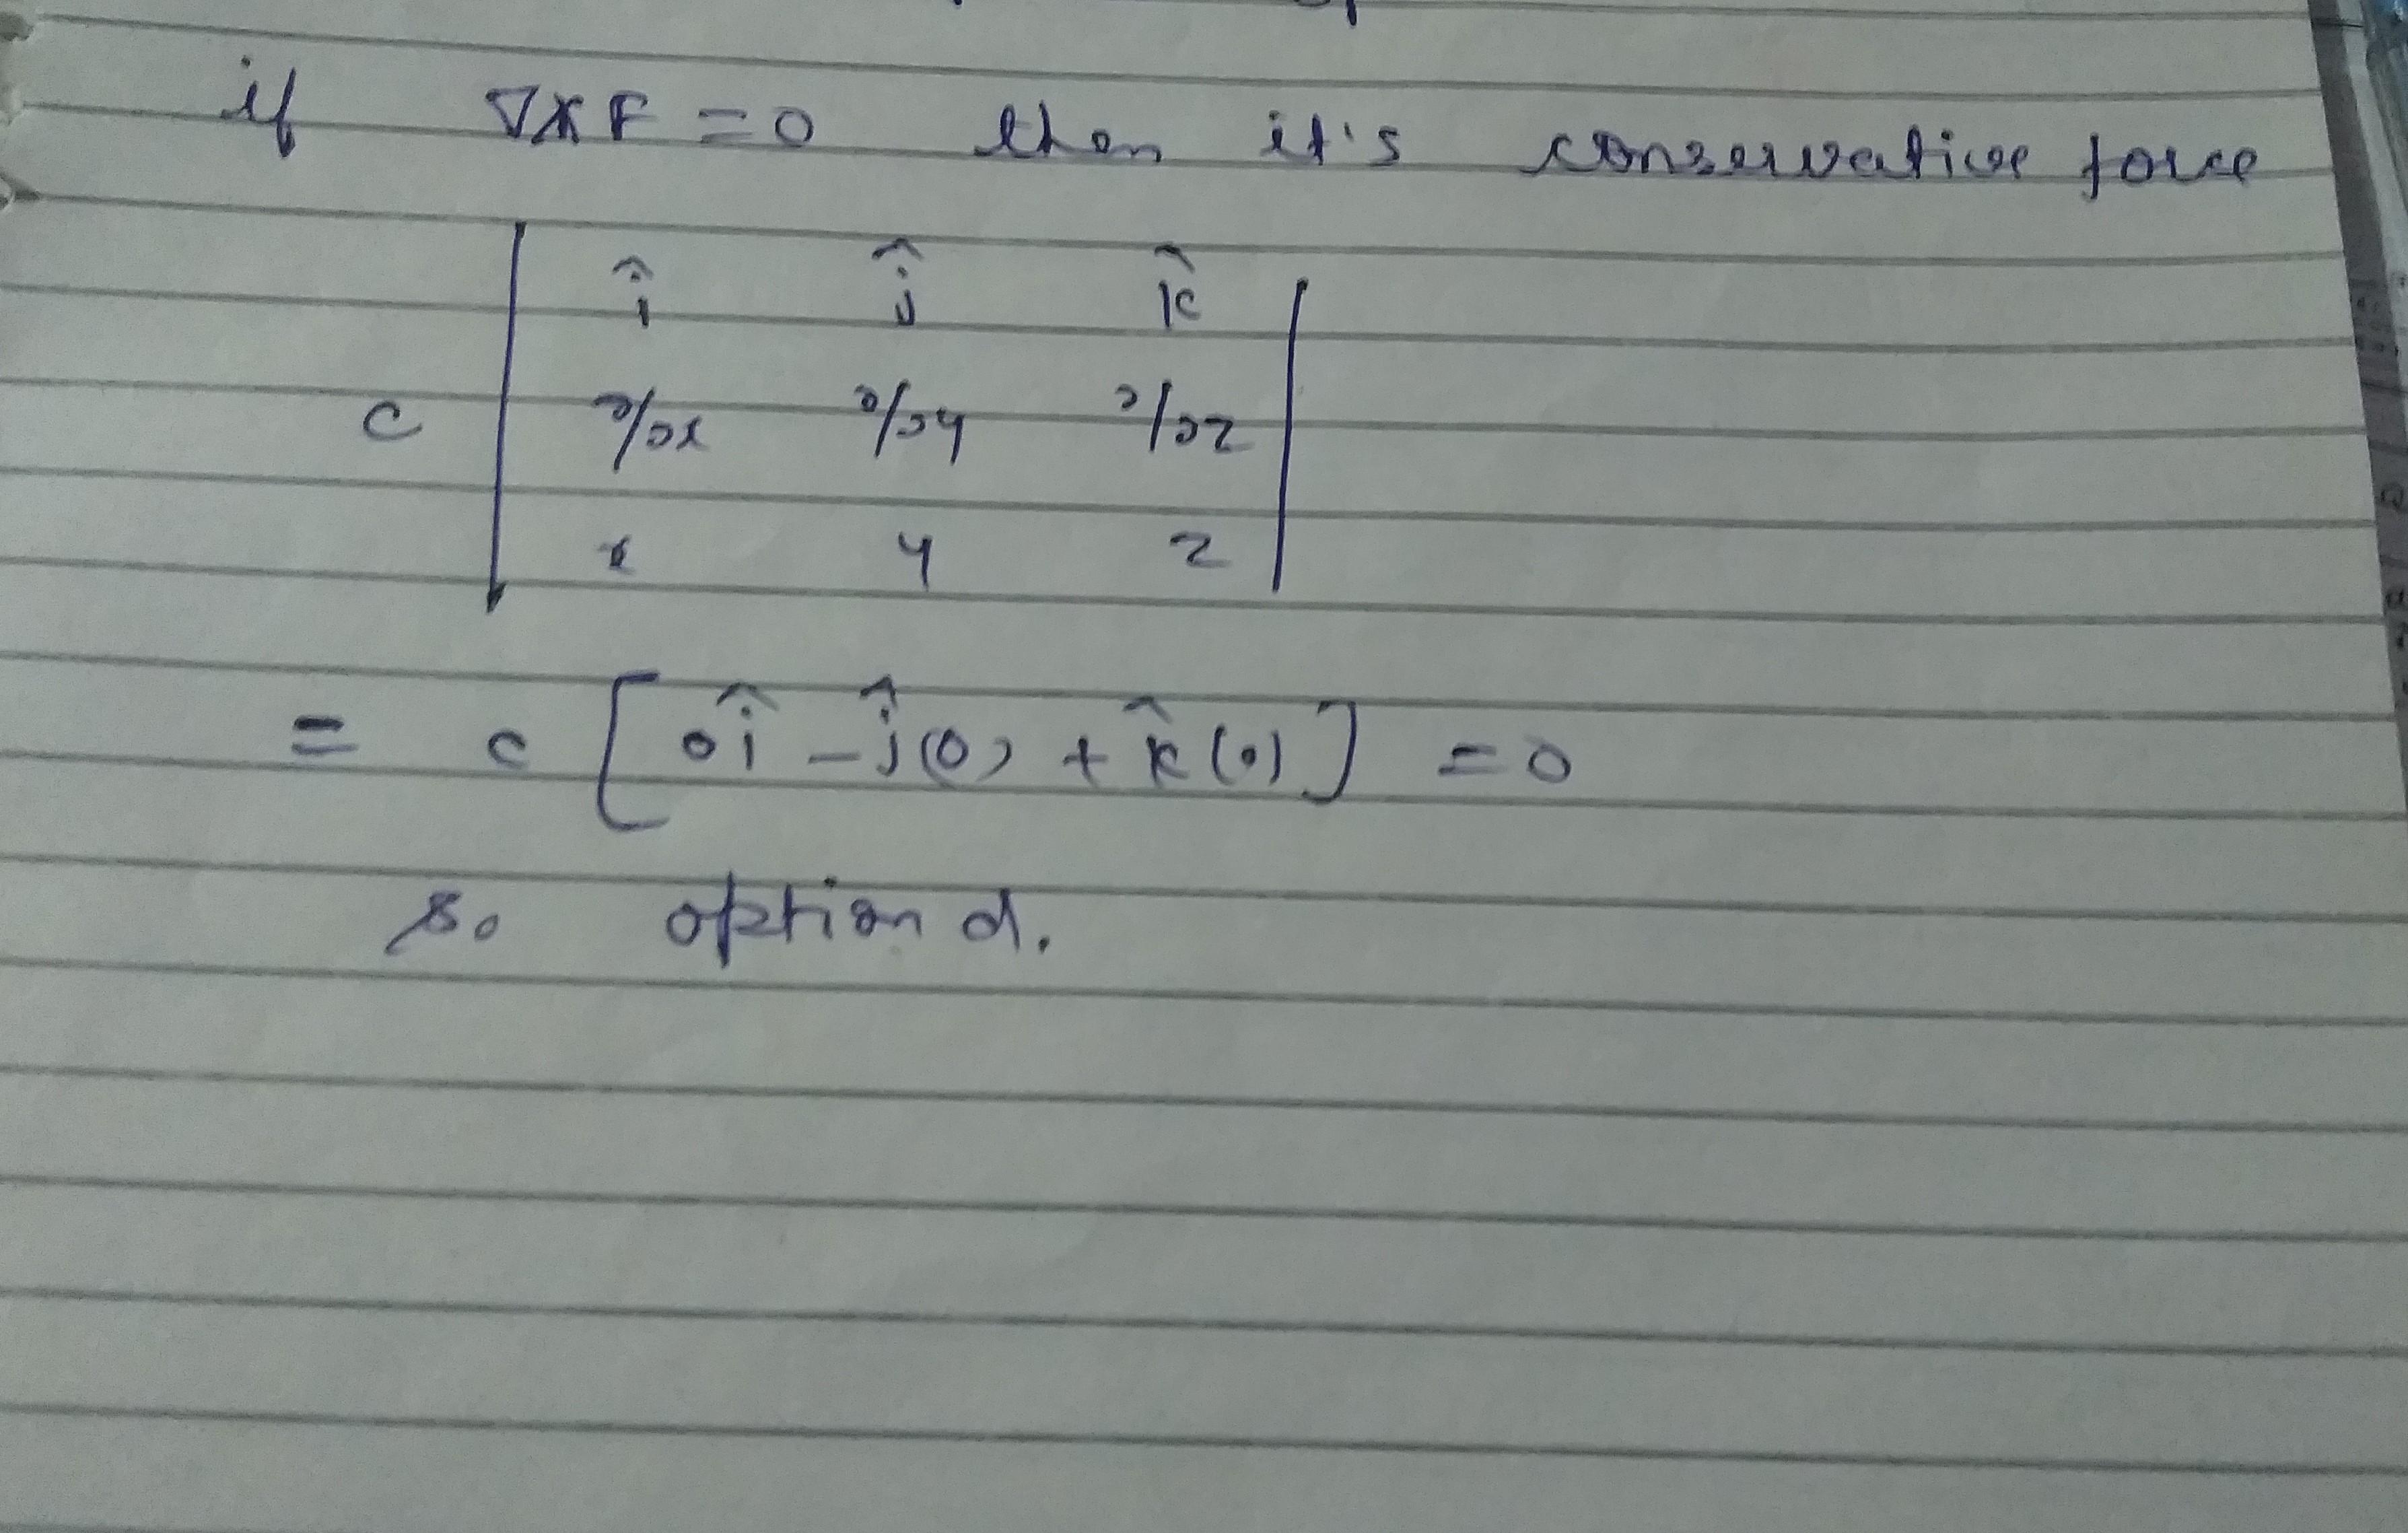 if ∇×F = 0 then it's conservative force
î ĵ k̂
c ∂/∂x ∂/∂y ∂/∂z
x y z
= c [ 0î - ĵ(0) + k̂(0) ] = 0
So option d.